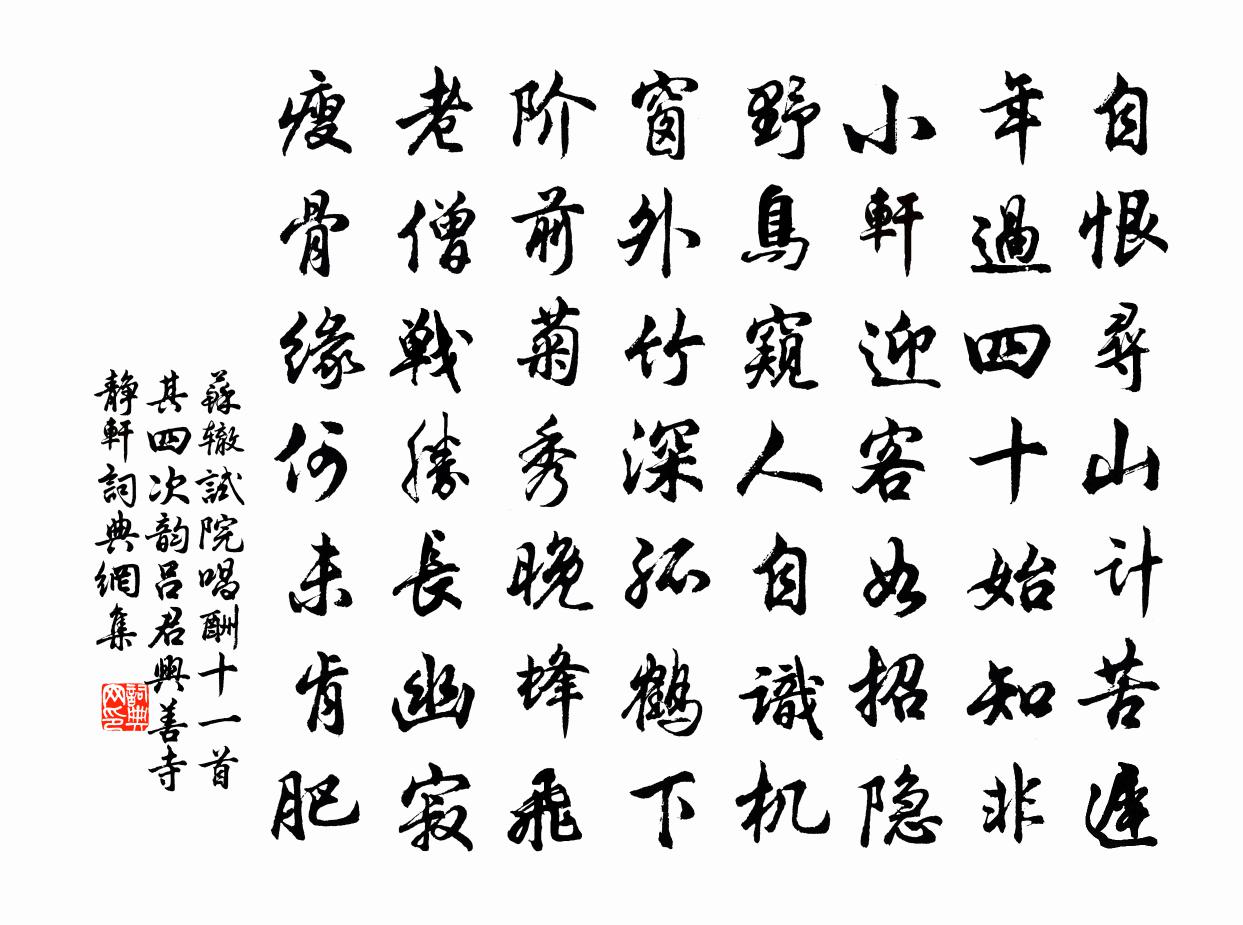 自恨尋山计苦遲
年過四十始知非
小軒迎客如招隐
野鳥窺人自識机
窗外竹深孤鶴下
阶前菊秀晚蜂飛
老僧戰勝長幽寂
瘦骨緣何未肯肥
蘇辙試院唱酬十一首
其四次韵吕君興善寺
静軒詞典網集
詞典网印